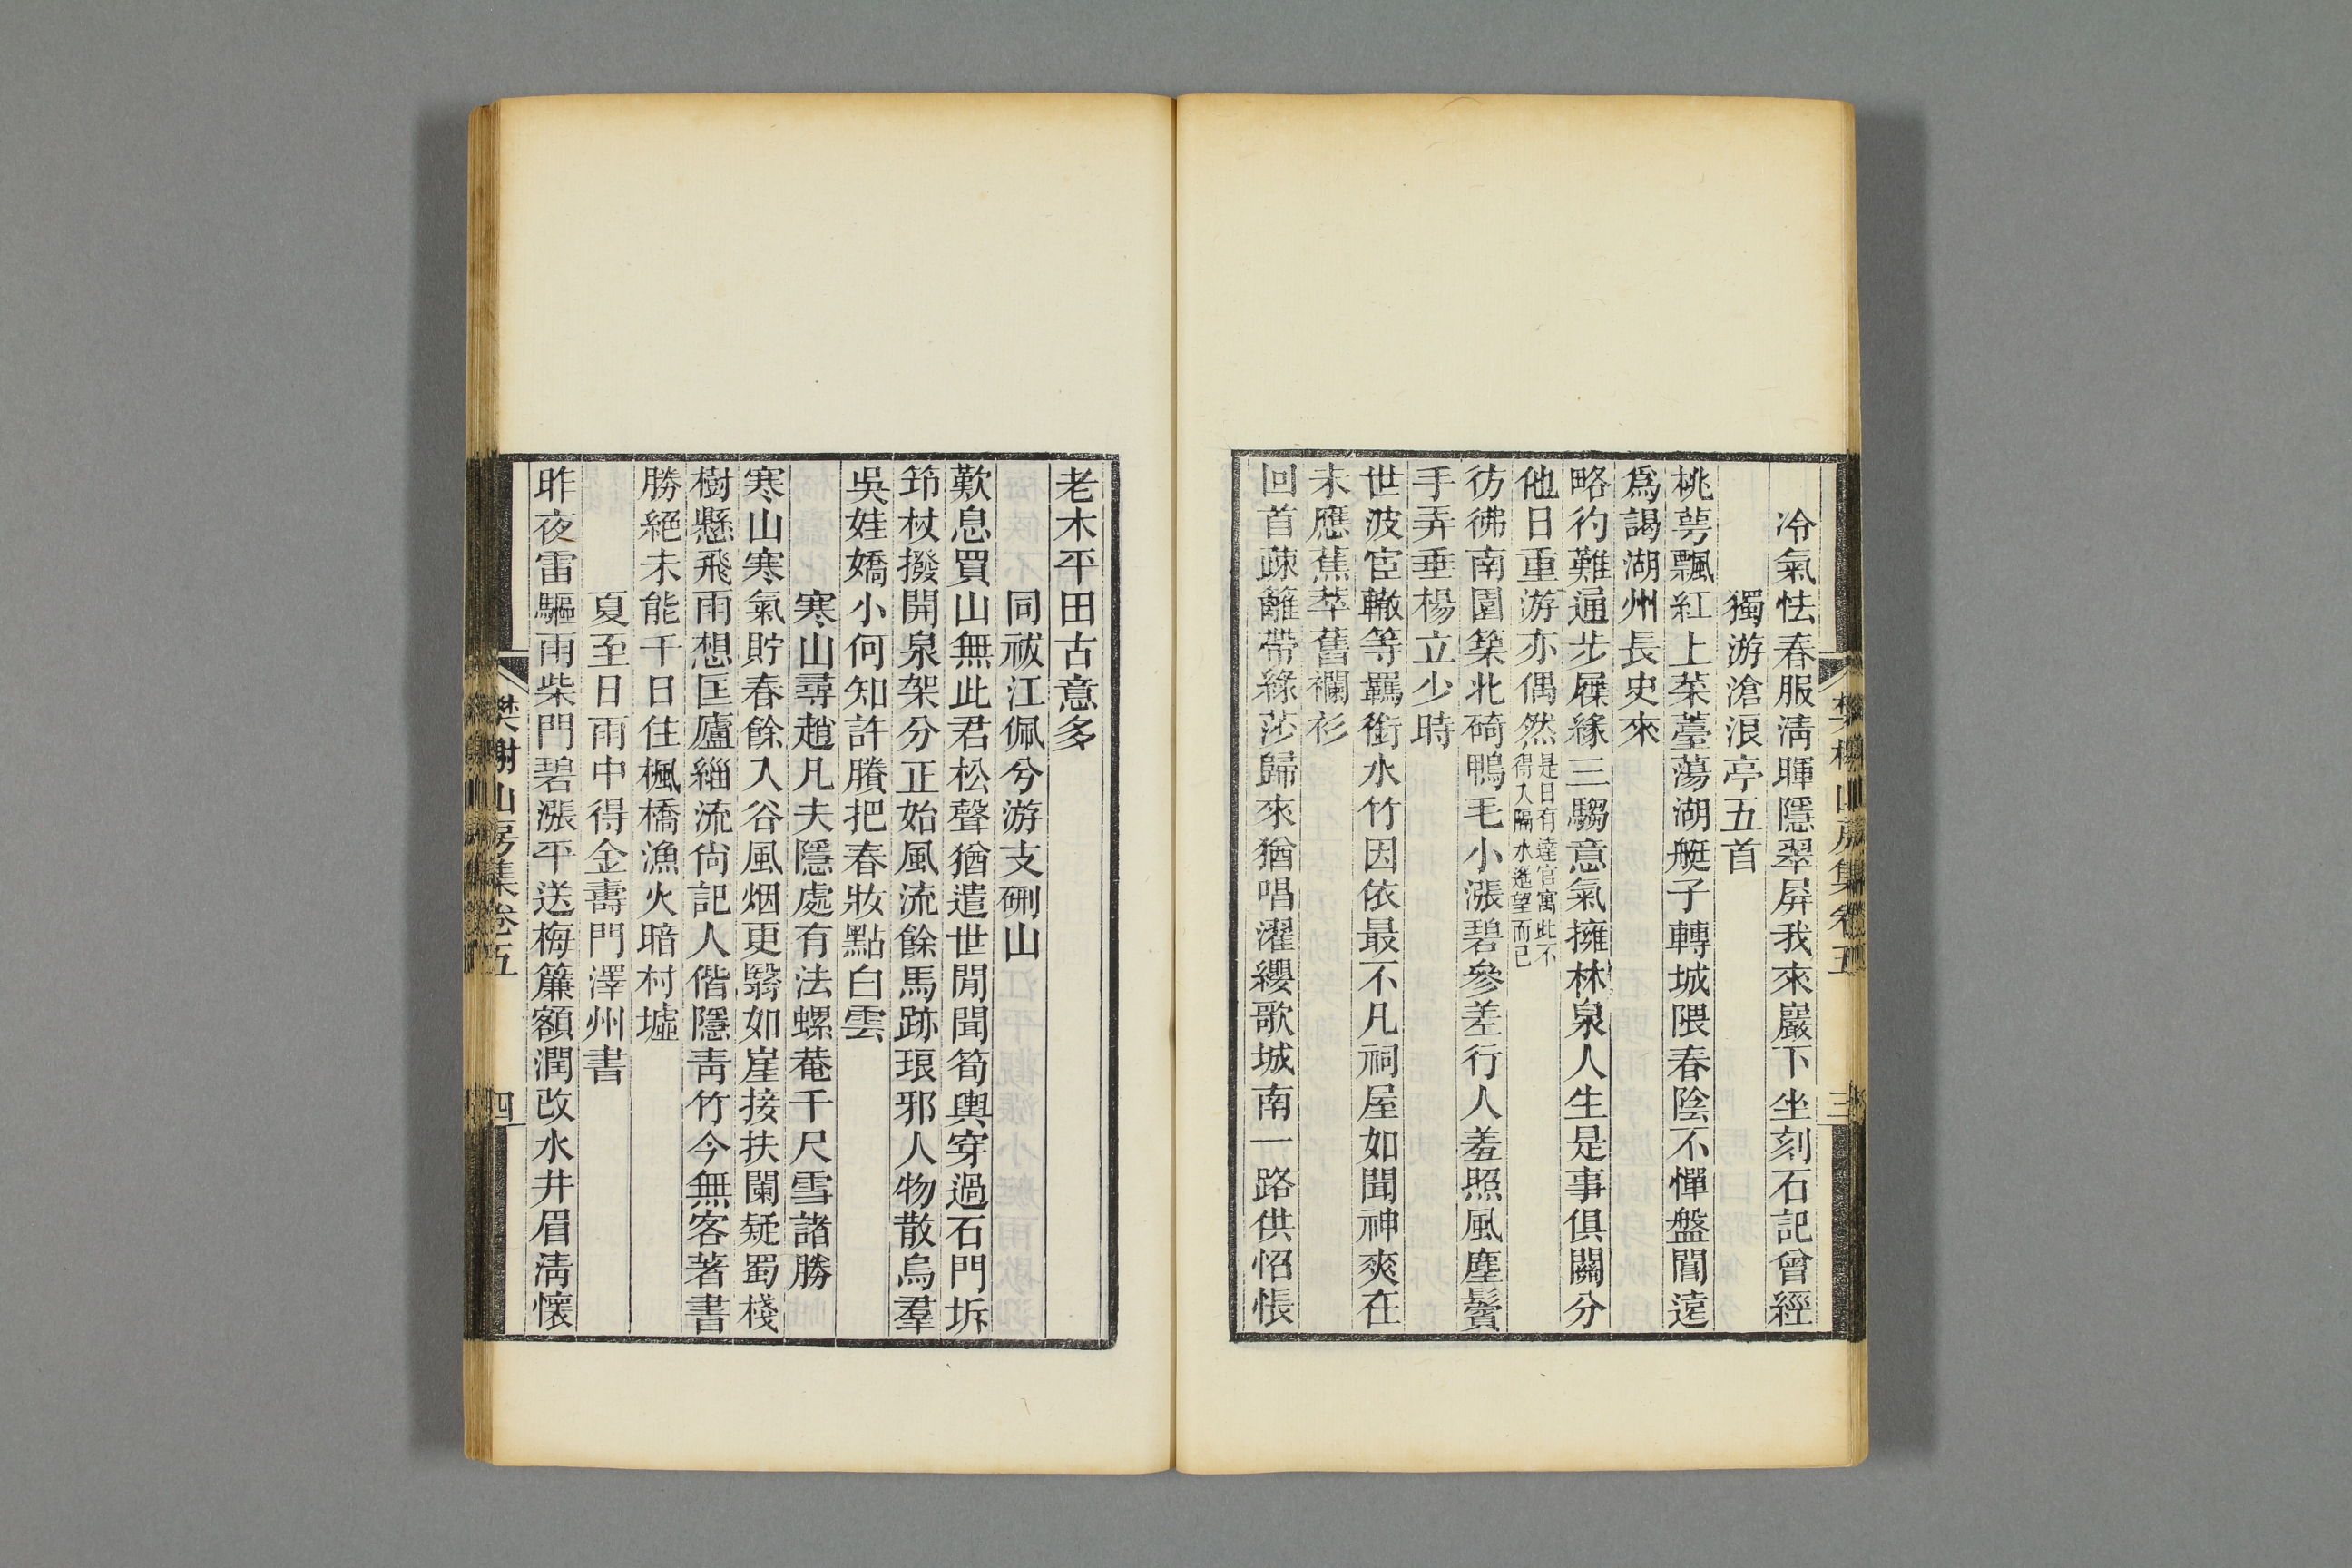 樊榭山房集卷五
三
冷氣怯春服淸暉隱翠屏我來巖下坐刻石記曾經
獨游滄浪亭五首
桃萼飄紅上菜薹蕩湖艇子轉城隈春陰不憚盤閶遠
爲謁湖州長史來
略彴難通步屧緣三騶意氣擁林泉人生是事俱關分
他日重游亦偶然是日有達官寓此不
得入隔水遙望而已
彷彿南園築北碕鴨毛小漲碧參差行人羞照風塵鬢
手弄垂楊立少時
世波宦轍等羈銜水竹因依最不凡祠屋如聞神爽在
未應蕉萃舊襴衫
回首疎籬帶綠莎歸來猶唱濯纓歌城南一路供怊悵
老木平田古意多
同祓江佩兮游支硎山
歎息買山無此君松聲猶遣世閒聞筍輿穿過石門坼
筇杖撥開泉架分正始風流餘馬跡琅邪人物散烏羣
吳娃嬌小何知許賸把春妝點白雲
寒山尋趙凡夫隱處有法螺菴千尺雪諸勝
寒山寒氣貯春餘入谷風烟更翳如崖接扶闌疑蜀棧
樹懸飛雨想匡廬緇流尙記人偕隱靑竹今無客著書
勝絕未能千日住楓橋漁火暗村墟
夏至日雨中得金壽門澤州書
昨夜雷驅雨柴門碧漲平送梅簾額潤改水井眉淸懷
樊榭山房集卷五
四